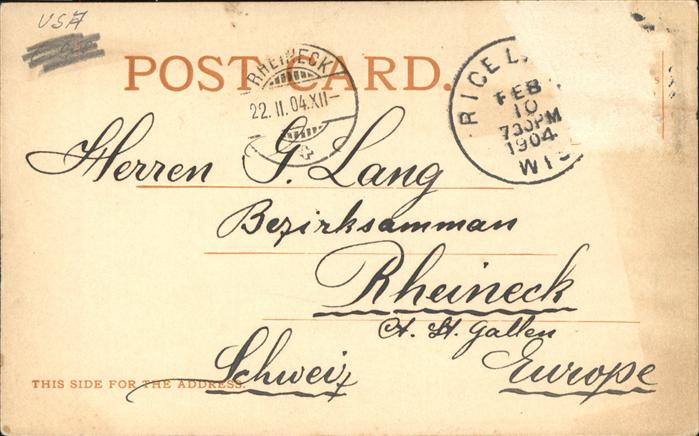 USA
POST CARD.
RHEINECK
22. II. 04. XII-
RICE L
FEB
10
730PM
1904
WIS
Herren G. Lang
Bezirksamman
Rheineck
Ct. St. Gallen
Schweiz Europe
THIS SIDE FOR THE ADDRESS.